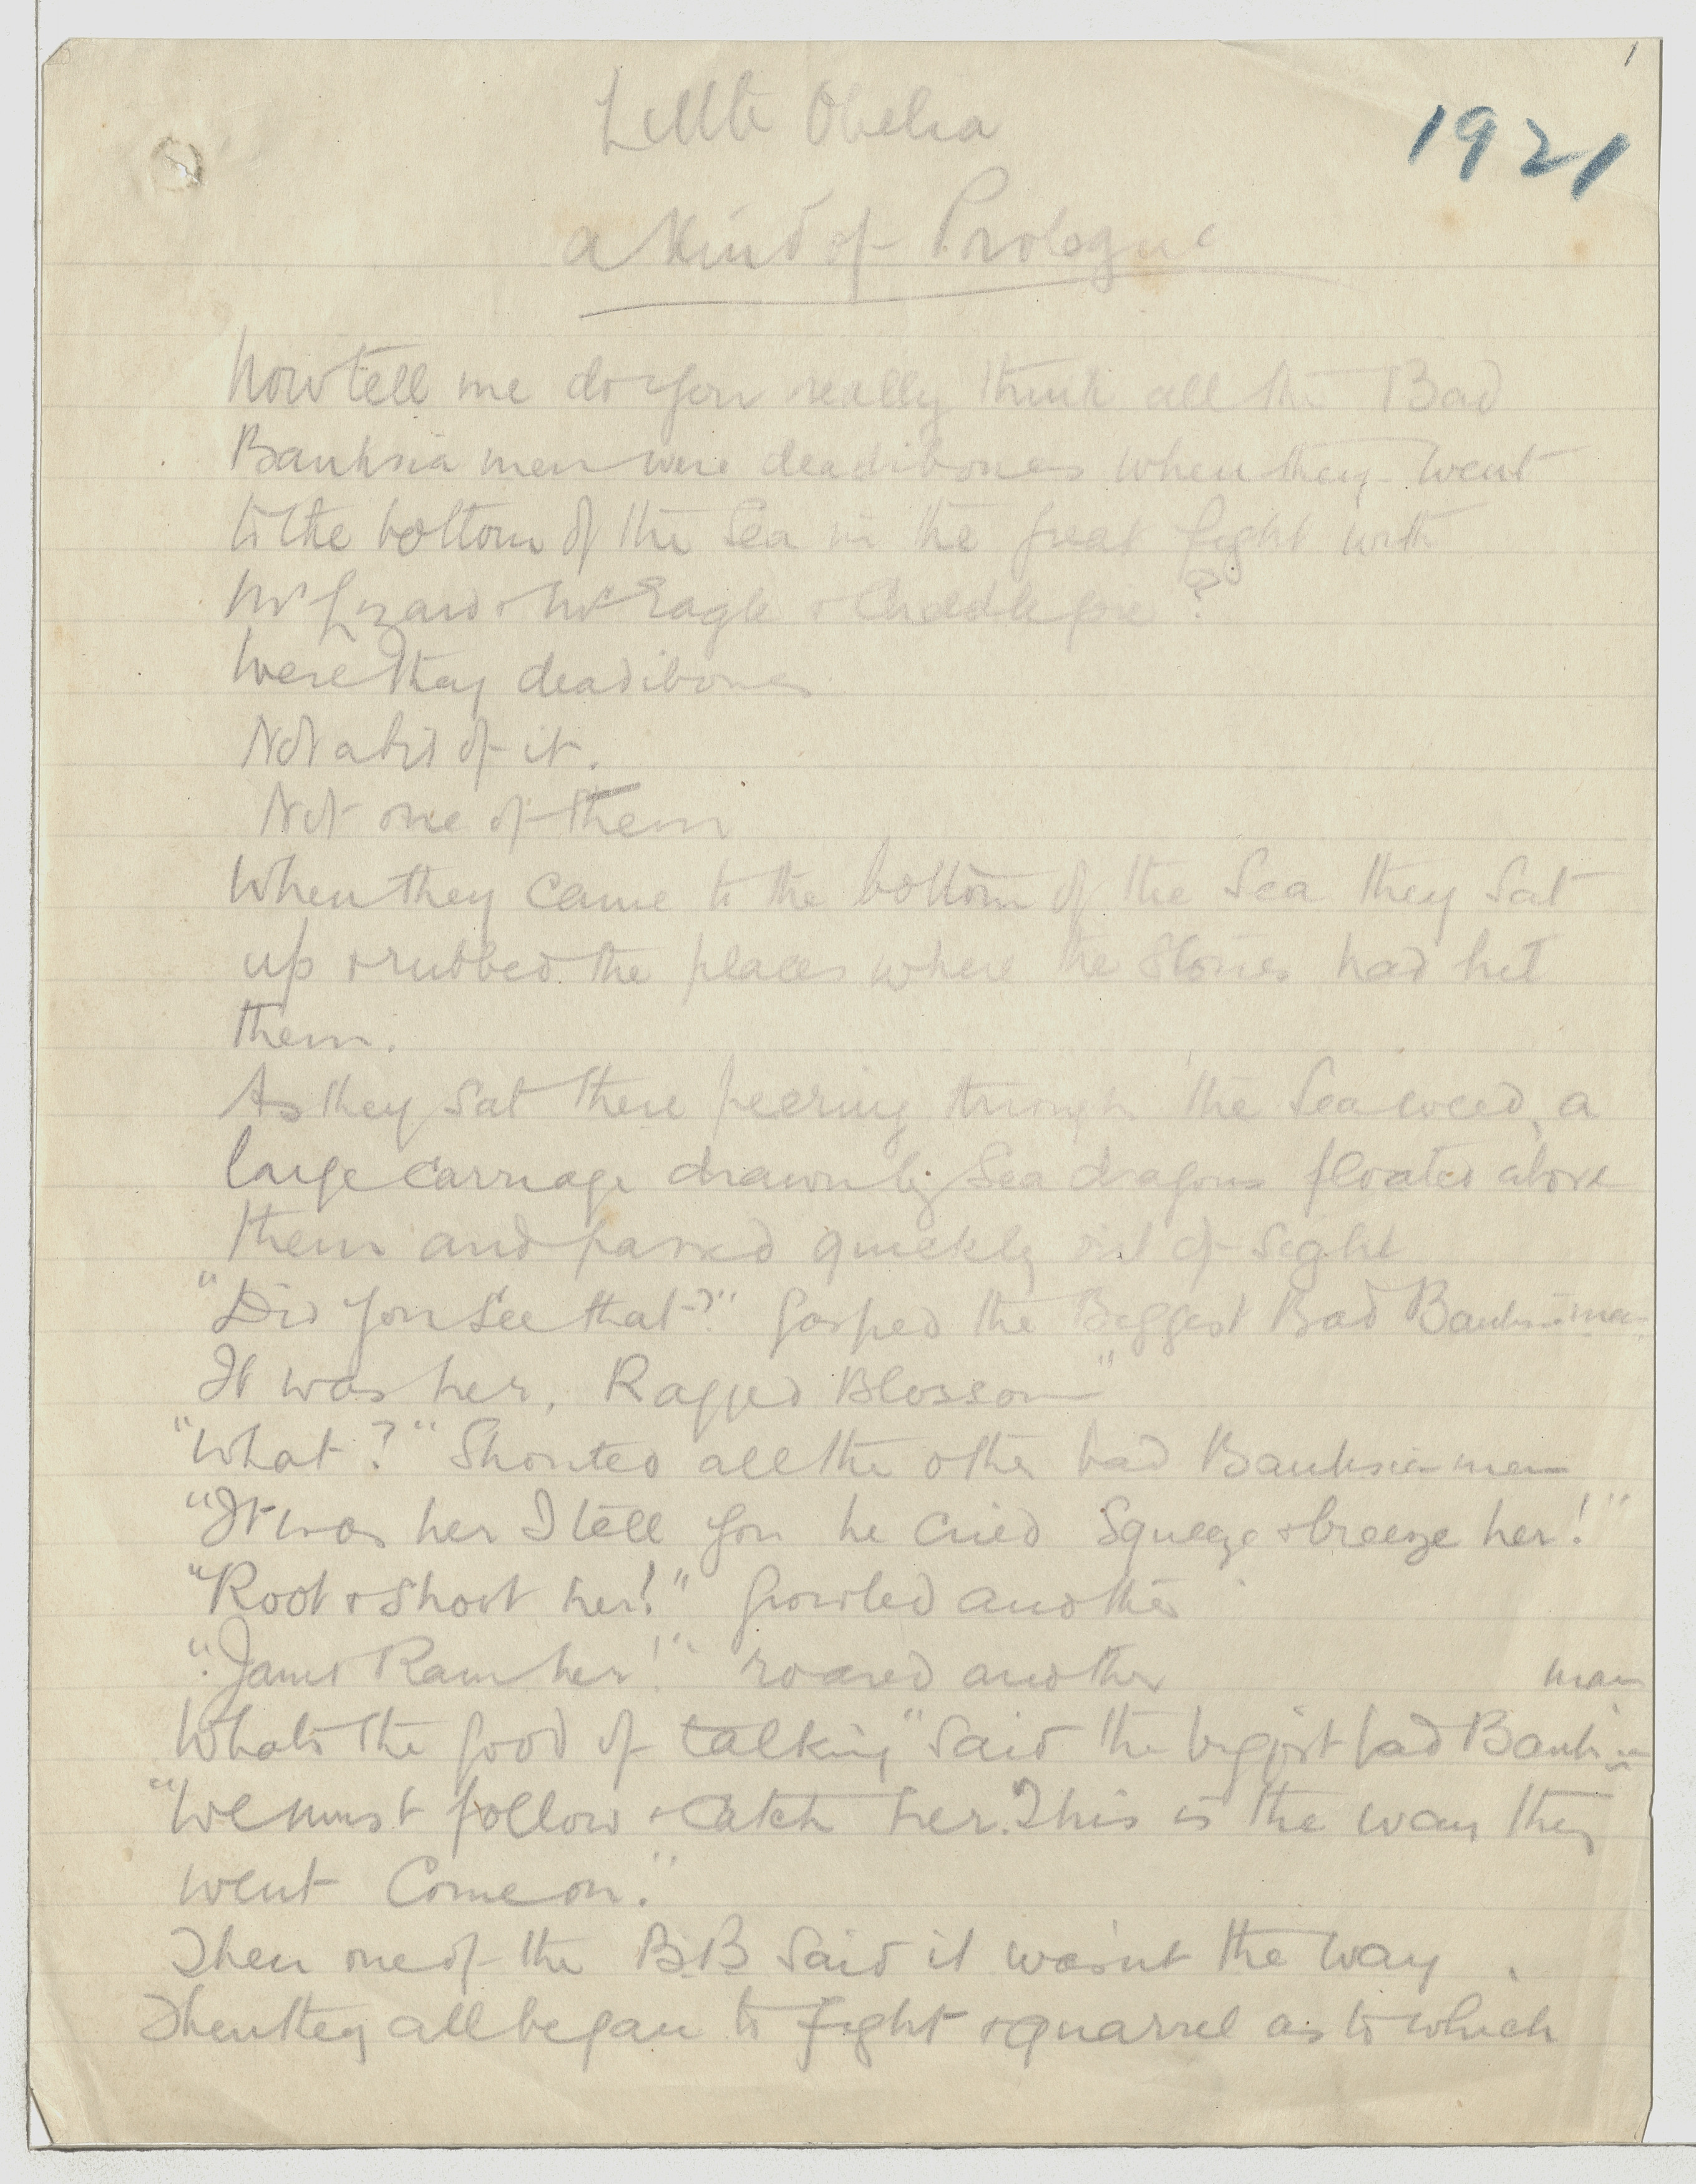 1
1921
Little Obelia
a Kind of Prologue
Now tell me do you really think all the Bad
Banksia men were deadibones when they went
to the bottom of the Sea in the great fight with
Mr Lizard & Mr Eagle & Cuddlepie ?
Were they deadibones
Not a bit of it.
Not one of them
When they came to the bottom of the Sea they Sat
up & rubbed the places where the Stones had hit
them.
As they Sat there peering through the Sea weed, a
large carriage drawn by Sea dragons floated above
them and passed quickly out of Sight
"Did you See that?" gasped the Biggest Bad Banksia man
It was her, Ragged Blossom"
"What?" Shouted all the other bad Banksia men
"It was her I tell you he cried Squeeze & breeze her!"
"Root & Shoot her!" growled another
"Jam & Ram her!" roared another
man
Whats the good of talking" Said the biggest bad Banksia
"We must follow & Catch her. This is the way they
went Come on."
Then one of the B.B Said it was'nt the way .
Then they all began to fight & quarrel as to which